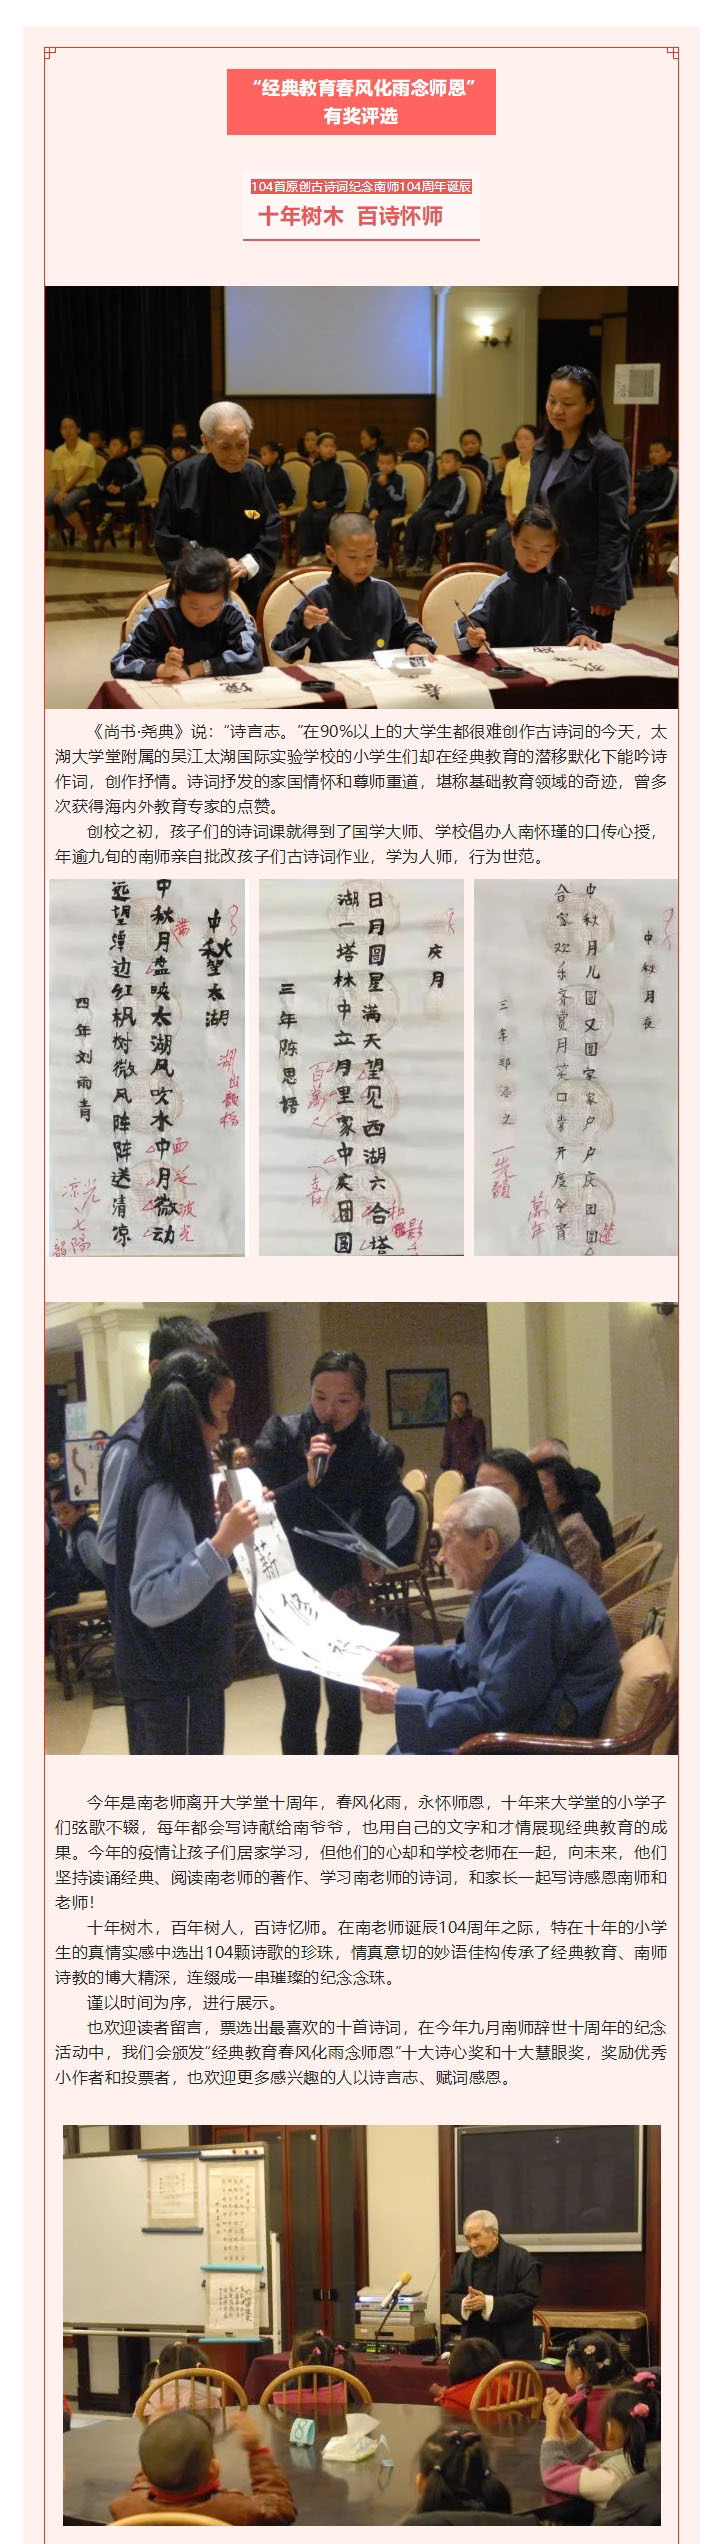 “经典教育春风化雨念师恩”
有奖评选
104首原创古诗词纪念南师104周年诞辰
十年树木 百诗怀师
《尚书·尧典》说：“诗言志。”在90%以上的大学生都很难创作古诗词的今天，太
湖大学堂附属的吴江太湖国际实验学校的小学生们却在经典教育的潜移默化下能吟诗
作词，创作抒情。诗词抒发的家国情怀和尊师重道，堪称基础教育领域的奇迹，曾多
次获得海内外教育专家的点赞。
创校之初，孩子们的诗词课就得到了国学大师、学校倡办人南怀瑾的口传心授，
年逾九旬的南师亲自批改孩子们古诗词作业，学为人师，行为世范。
中秋望太湖
中秋月盘映太湖风吹水中月微动
远望潭边红枫树微风阵阵送清凉
四年刘雨青
庆月
日月圆星满天望见西湖六合塔
湖一塔林中立月里家中庆团圆
三年陈思语
百萬人
喜
中秋月夜
中秋月儿圆又圆家家户户庆团圆
合家欢乐齐赏月笑口常开度今宵
萬年
今年是南老师离开大学堂十周年，春风化雨，永怀师恩，十年来大学堂的小学子
们弦歌不辍，每年都会写诗献给南爷爷，也用自己的文字和才情展现经典教育的成
果。今年的疫情让孩子们居家学习，但他们的心却和学校老师在一起，向未来，他们
坚持读诵经典、阅读南老师的著作、学习南老师的诗词，和家长一起写诗感恩南师和
老师！
十年树木，百年树人，百诗忆师。在南老师诞辰104周年之际，特在十年的小学
生的真情实感中选出104颗诗歌的珍珠，情真意切的妙语佳构传承了经典教育、南师
诗教的博大精深，连缀成一串璀璨的纪念念珠。
谨以时间为序，进行展示。
也欢迎读者留言，票选出最喜欢的十首诗词，在今年九月南师辞世十周年的纪念
活动中，我们会颁发“经典教育春风化雨念师恩”十大诗心奖和十大慧眼奖，奖励优秀
小作者和投票者，也欢迎更多感兴趣的人以诗言志、赋词感恩。